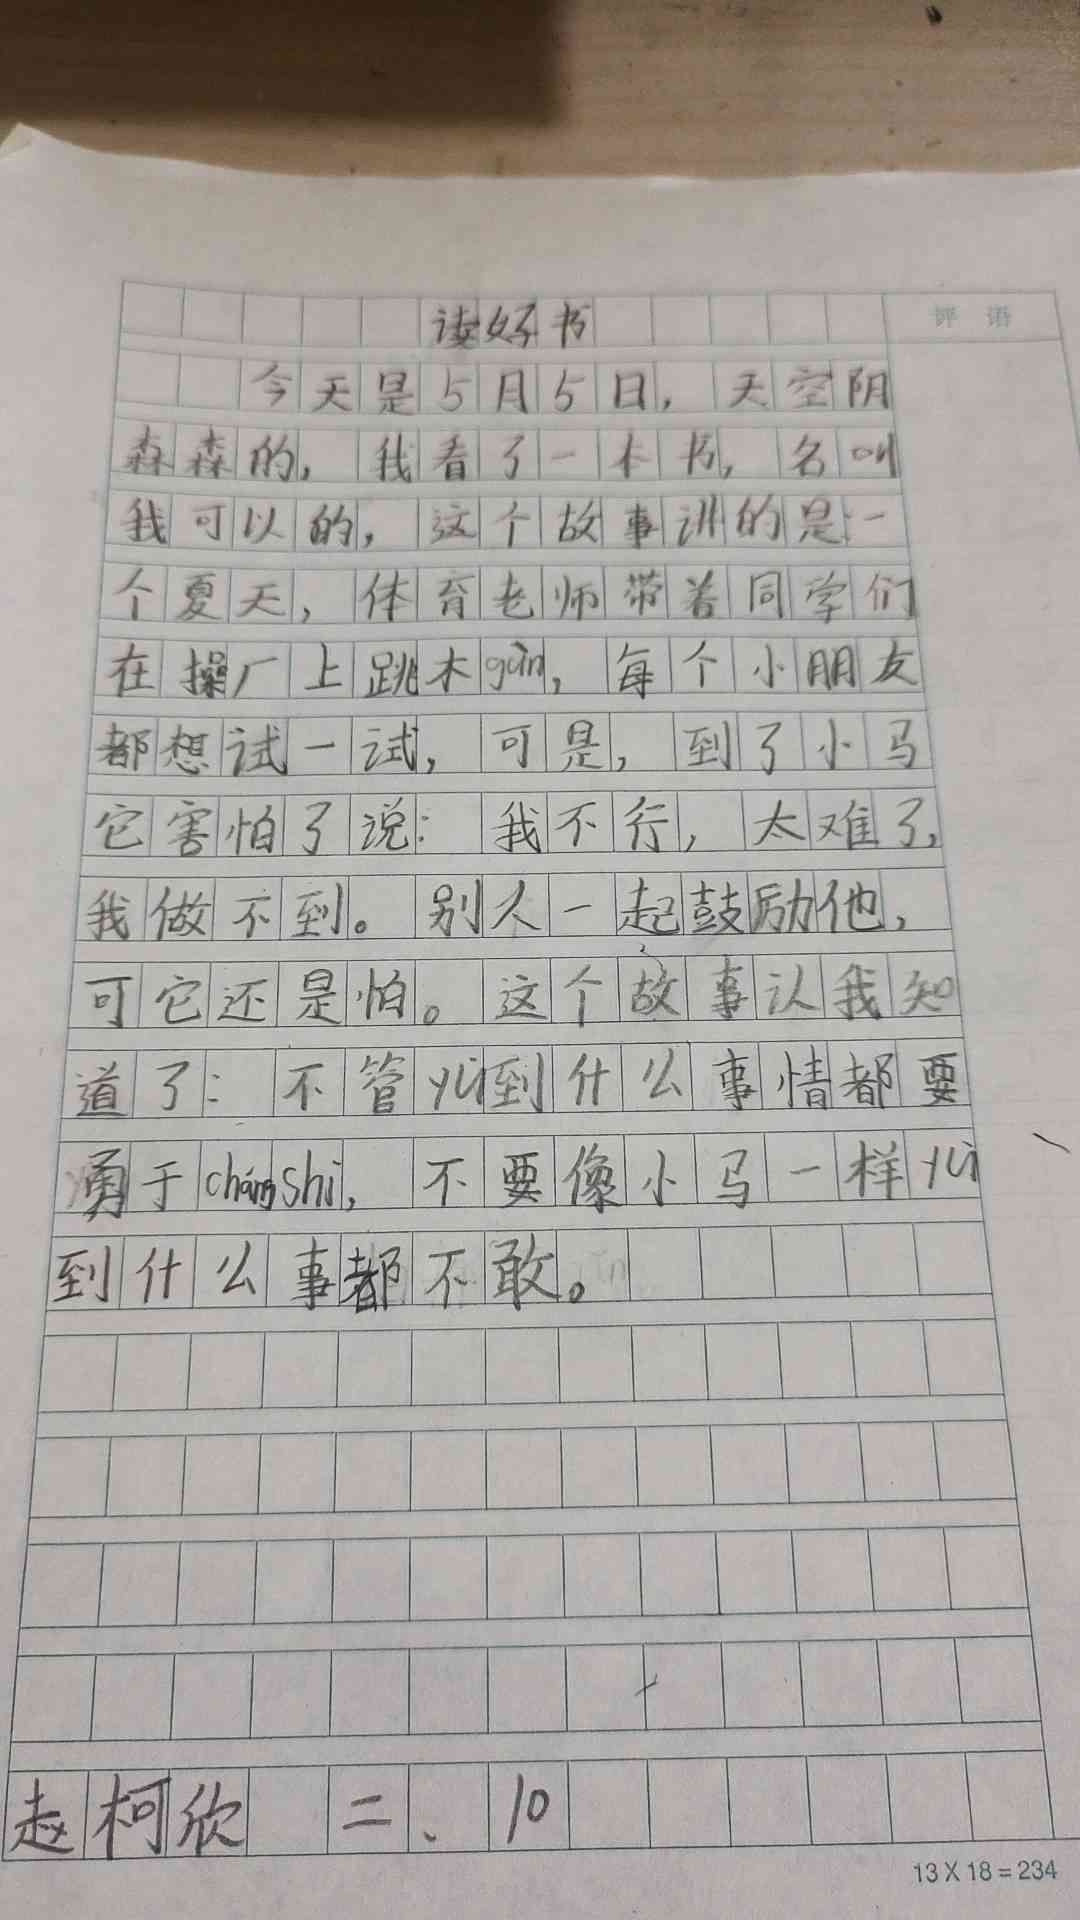 读好书
评语
今天是5月5日，天空阴
森森的，我看了一本书，名叫
我可以的，这个故事讲的是一
个夏天，体育老师带着同学们
在操厂上跳木gūn，每个小朋友
都想试一试，可是，到了小马
它害怕了说：我不行，太难了，
我做不到。别人一起鼓励他，
可它还是怕。这个故事认我知
道了：不管yù到什么事情都要
勇于cháng shì，不要像小马一样yù
到什么事都不敢。
赵柯欣 二、10
13 X 18 = 234